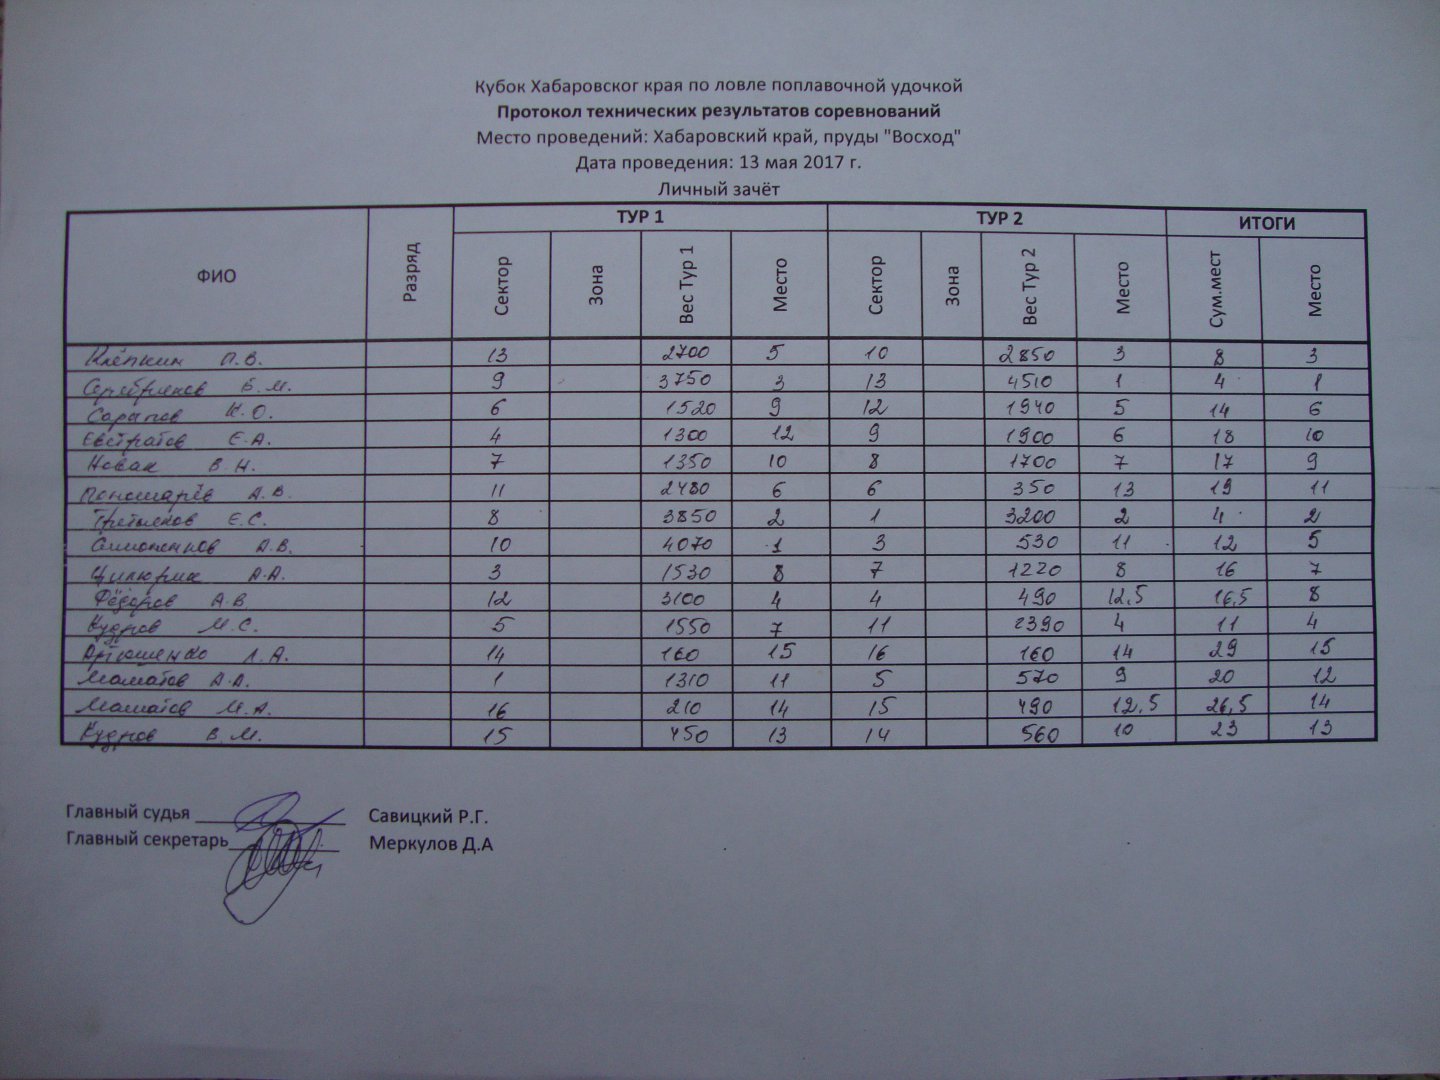 Кубок Хабаровског края по ловле поплавочной удочкой
Протокол технических результатов соревнований
Место проведений: Хабаровский край, пруды "Восход"
Дата проведения: 13 мая 2017 г.
Личный зачёт
ТУР 1 ТУР 2 ИТОГИ
ФИО Разряд Сектор Зона Вес Тур 1 Место Сектор Зона Вес Тур 2 Место Сум.мест Место
Клёпкин П.В. 13 2700 5 10 2850 3 8 3
Серебряков В.М. 9 3750 3 13 4510 1 4 1
Сарапов К.О. 6 1520 9 12 1940 5 14 6
Евстратов Е.А. 4 1300 12 9 1900 6 18 10
Новак В.Н. 7 1350 10 8 1700 7 17 9
Пономарёв А.В. 11 2480 6 6 350 13 19 11
Третьяков Е.С. 8 3850 2 1 3200 2 4 2
А.В. 10 4070 1 3 530 11 12 5
Цилюрик А.А. 3 1530 8 7 1220 8 16 7
Фёдоров А.В. 12 3100 4 4 490 12,5 16,5 8
Кудров М.С. 5 1550 7 11 2390 4 11 4
Артюшенко Л.А. 14 160 15 16 160 14 29 15
Маматов А.А. 1 1310 11 5 570 9 20 12
Маматов М.А. 16 210 14 15 490 12,5 26,5 14
Кудров В.М. 15 450 13 14 560 10 23 13
Главный судья Савицкий Р.Г.
Главный секретарь Меркулов Д.А